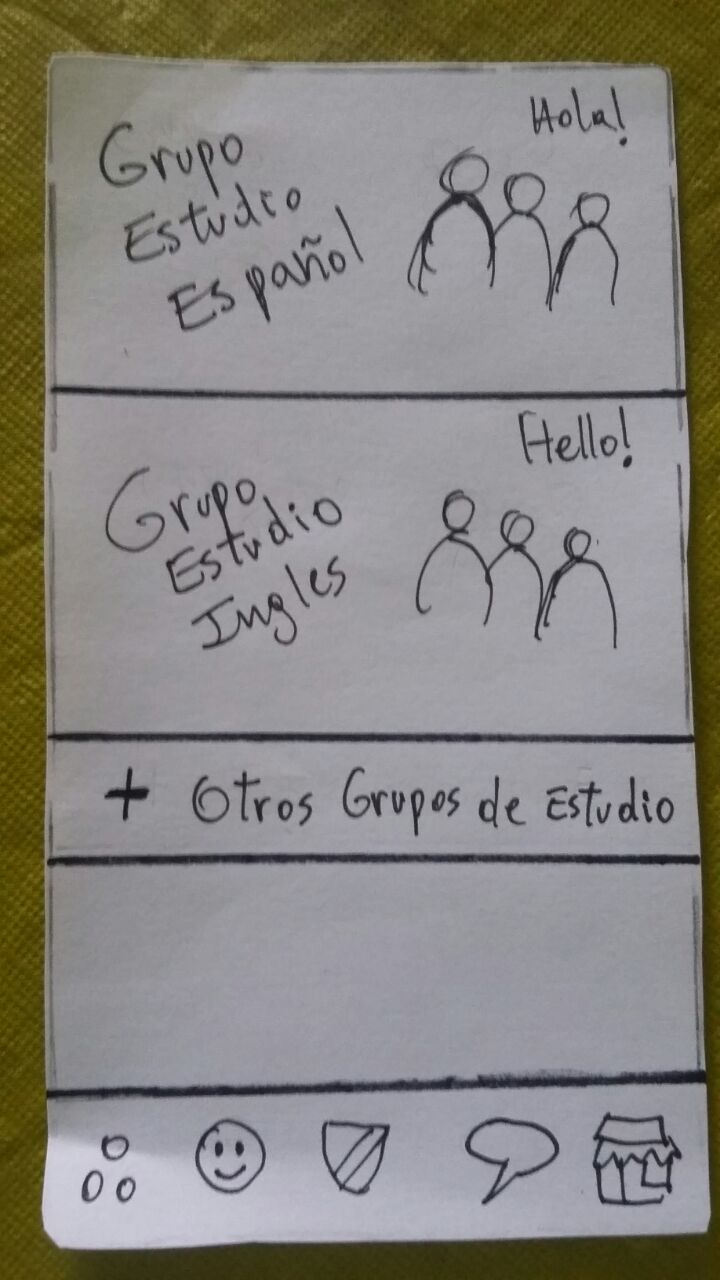 Hola!
Grupo
Estudio
Español
Hello!
Grupo
Estudio
Ingles
+ Otros Grupos de Estudio